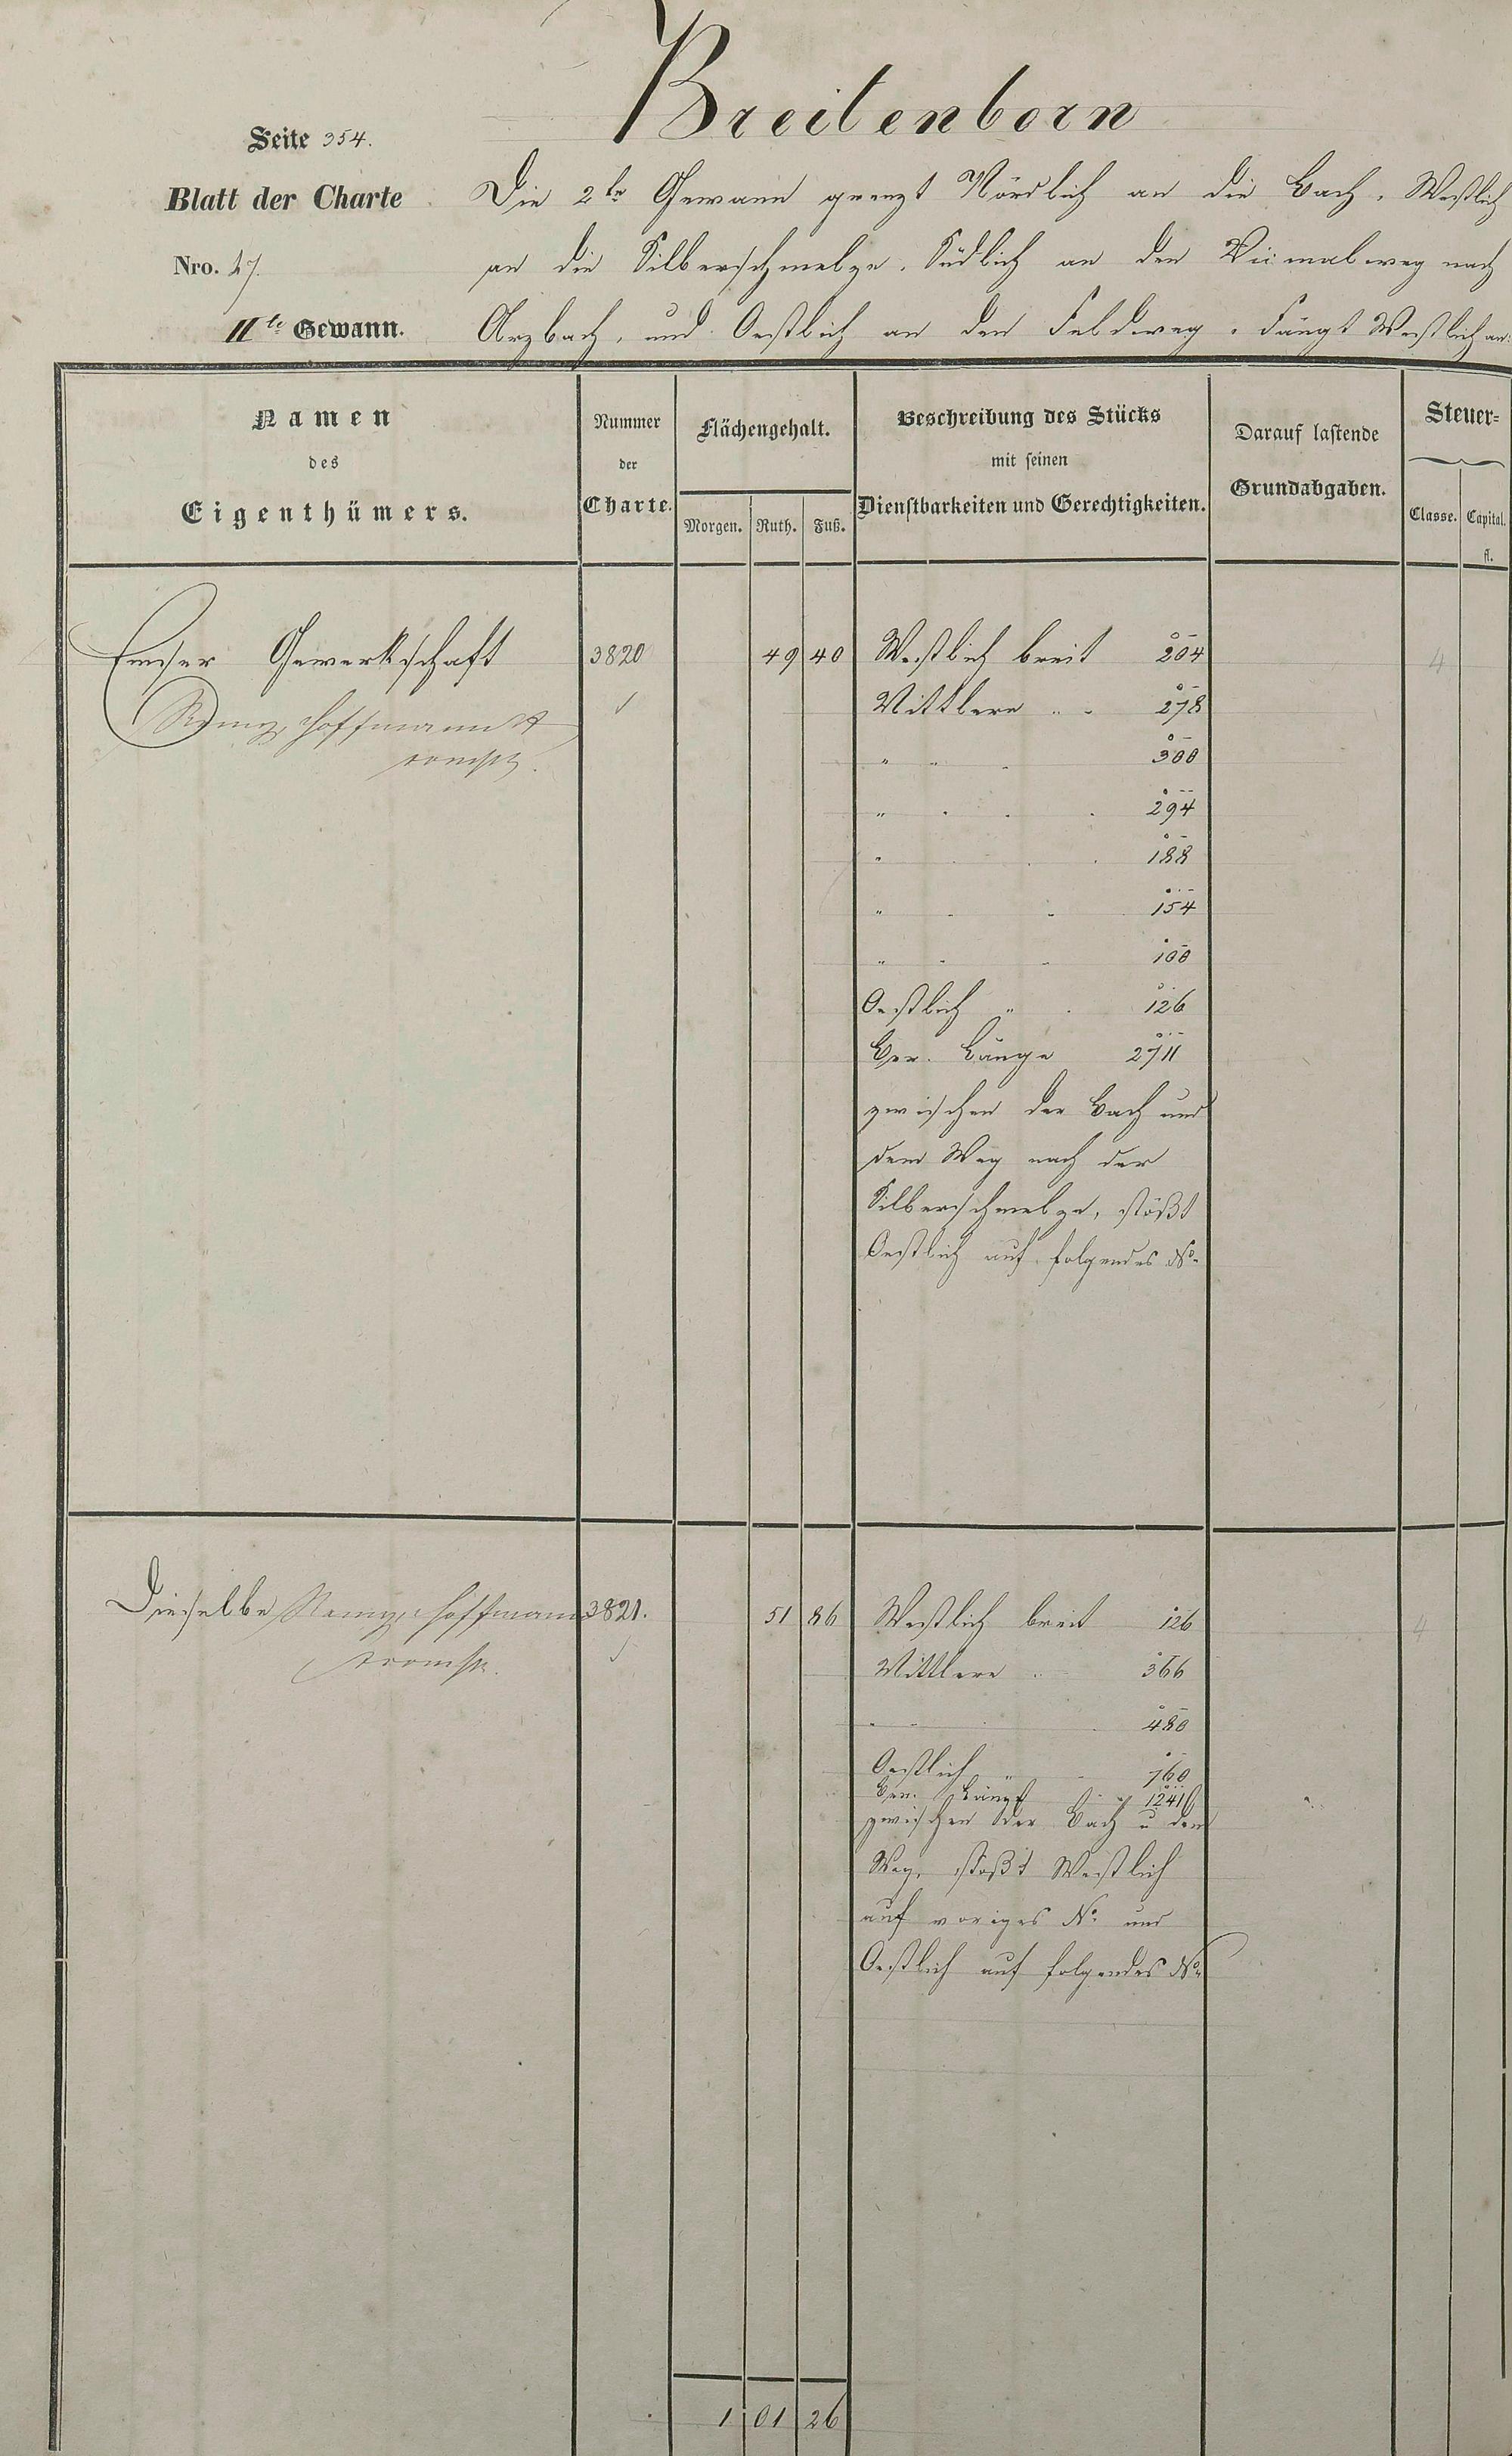 Breitenborn
Seite 354.
Blatt der Charte
Nro. 47.
II te Gewann.
Die 2te Gewann grenzt Nördlich an die Bach, Westlich
an die Silberschmelze, Südlich an den Vicinalweg nach
Arzbach, und Oestlich an den Feldweg. Fängt Westlich an:
Namen
des
Eigenthümers.
Nummer
der
Charte.
Flächengehalt.
Morgen. Ruth. Fuß.
Beschreibung des Stücks
mit seinen
Dienstbarkeiten und Gerechtigkeiten.
Darauf lastende
Grundabgaben.
Steuer-
Classe. Capital.
fl.
Emser Gewerkschaft 3820 49 40 Westlich breit 204 4
Remy, Hoffmann &
Mittlere " " 278
" " " 300
" " " 294
" " " 188
" " " 154
" " " 100
Oestlich " " 126
Ger. Länge 2711
zwischen der Bach und
dem Weg nach der
Silberschmelze, stößt
Oestlich auf folgendes No.
Dieselbe Remy, Hoffmann 3821. 51 86 Westlich breit 126 4
Mittlere " 366
" " 480
Oestlich " " 760
Ger. Länge " " 1241
zwischen der Bach u dem
Weg, stößt Westlich
auf voriges No. und
Oestlich auf folgendes No.
1 01 26